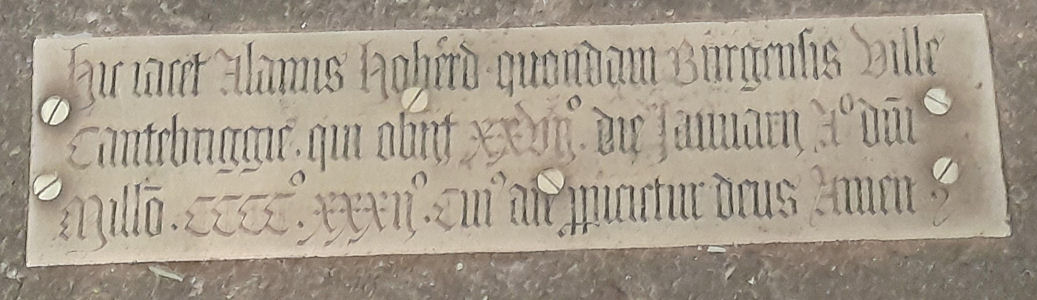 Hic iacet Alanus Hobérd quondam Burgensis Ville
Cantebriggie. qui obijt xxvijº. die Januarij Aº dn̄i
Millō. CCCCº. xxxijº. Cui' aīe ꝓpicietur deus Amen